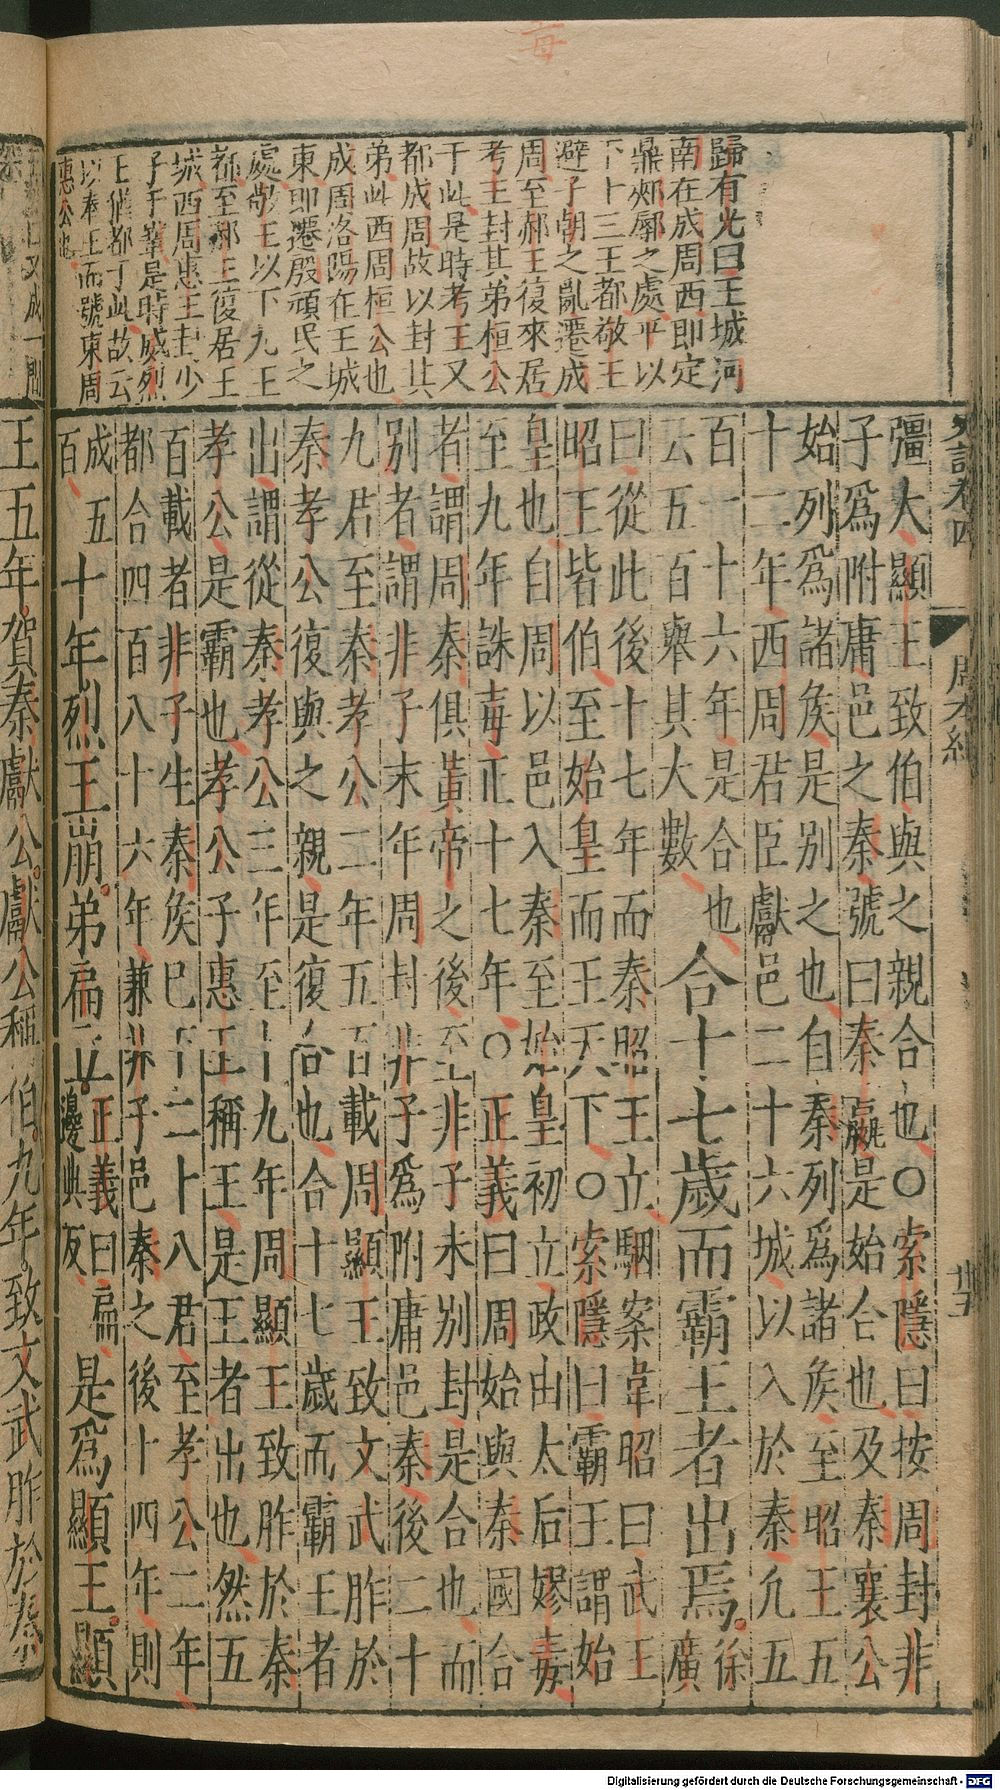 歸有光曰王城河
南在成周西即定
鼎郟鄏之處平以
下十三王都敬王
避子朝之亂遷成
周至赧王復來居
考王封其弟桓公
于此是時考王又
都成周故以封其
弟此西周桓公也
成周洛陽在王城
東即遷殷頑民之
處敬王以下九王
都至赧王復居王
城西周惠王封少
子于鞏是時威烈
王偕都于此故云
以奉王而號東周
惠公也
史記卷四 周本紀 廿五
彊大顯王致伯與之親合也〇索隱曰按周封非
子爲附庸邑之秦號曰秦嬴是始合也及秦襄公
始列爲諸矦是別之也自秦列爲諸矦至昭王五
十二年西周君臣獻邑二十六城以入於秦凢五
百一十六年是合也
云五百舉其大數
合十七歲而霸王者出焉。徐廣
曰從此後十七年而秦昭王立駰案韋昭曰武王
昭王皆伯至始皇而王天下〇索隱曰霸王謂始
皇也自周以邑入秦至始皇初立政由太后嫪毐
至九年誅毐正十七年〇正義曰周始與秦國合
者謂周秦俱黃帝之後至非子未別封是合也而
別者謂非子末年周封非子爲附庸邑秦後二十
九君至秦孝公二年五百載周顯王致文武胙於
秦孝公復與之親是復合也合十七歲而霸王者
出謂從秦孝公三年至十九年周顯王致胙於秦
孝公是霸也孝公子惠王稱王是王者出也然五
百載者非子生秦矦已下二十八君至孝公二年
都合四百八十六年兼非子邑秦之後十四年則
成五百 十年烈王崩。弟扁立。正義曰扁邊典反 是爲顯王。顯
王五年賀秦獻公。獻公稱伯。九年。致文武胙於秦
Digitalisierung gefördert durch die Deutsche Forschungsgemeinschaft - DFG